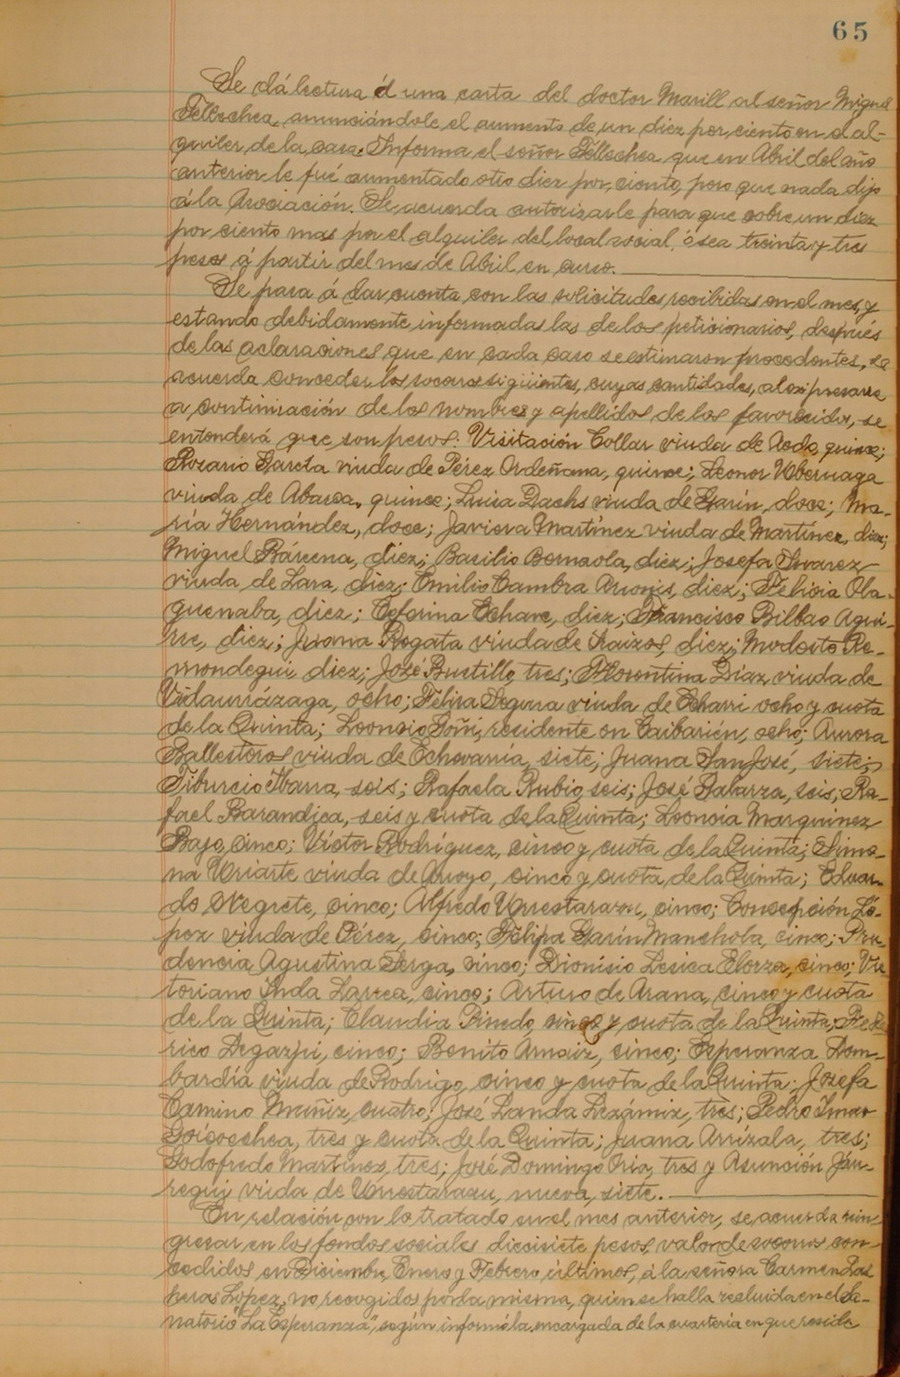 65
Se dá lectura á una carta del doctor Marill al señor Miguel
Tellechea, anunciándole el aumento de un diez por ciento en el al-
quiler de la casa. Informa el señor Tellechea que en Abril del año
anterior le fué aumentado otro diez por ciento, pero que nada dijo
á la Asociación. Se acuerda autorizarle para que cobre un diez
por ciento mas por el alquiler del local social, ó sea treinta y tres
pesos á partir del mes de Abril en curso.
Se pasa á dar cuenta con las solicitudes recibidas en el mes, y
estando debidamente informadas las de los peticionarios, después
de las aclaraciones que en cada caso se estimaron procedentes, se
acuerda conceder los socorros sigüientes, cuyas cantidades, al expresarse
a continuación de los nombres y apellidos de los favorecidos, se
entenderá que son pesos: Visitación Collar viuda de Aedo, quince;
Rozario García viuda de Pérez Ordeñana, quince; Leonor Uberuaga
viuda de Abasca, quince; Luisa Dachs viuda de Garín, doce; Ma-
ría Hernández, doce; Javiera Martínez viuda de Martínez, diez;
Miguel Bárcena, diez; Basilio Bernaola, diez; Josefa Suarez
viuda de Lara, diez; Emilio Cambra Asonis, diez; Felicia Ola-
guenaba, diez; Ceferina Echave, diez; Francisco Bilbao Agui-
rre, diez; Juana Rogata viuda de Iraizos, diez; Modesto Re-
mondegui diez; José Bustillo, tres; Florentina Diaz viuda de
Vidaurrázaga, ocho; Felipa Segura viuda de Echarri ocho y cuota
de la Quinta; Leoncio Goñi, residente en Caibarién, ocho; Aurora
Ballesteros viuda de Echevarría, siete; Juana San José, siete;
Tiburcio Ibarra, seis; Rafaela Rubio, seis; José Galarza, seis; Ra-
fael Barandica, seis y cuota de la Quinta; Leoncia Marquinez
Bajo, cinco; Víctor Rodríguez, cinco y cuota de la Quinta; Simo-
na Uriarte viuda de Arroyo, cinco y cuota de la Quinta; Eduar-
do Negrete, cinco; Alfredo Urrestarazu, cinco; Concepción Ló-
pez viuda de Pérez, cinco; Felipa Garín Manchola, cinco; Pru-
dencia Agustina Serga, cinco; Dionisio Lesica Elorza, cinco; Vic-
toriano Inda Larrea, cinco; Arturo de Arana, cinco y cuota
de la Quinta; Claudia Pinedo cinco y cuota de la Quinta; Fede-
rico Legazpi, cinco; Benito Arnaiz, cinco; Esperanza Lom-
bardía viuda de Rodrigo, cinco y cuota de la Quinta; Josefa
Camino Muñiz, cuatro; José Landa Lezámiz, tres; Pedro Imaz
Goicoechea, tres y cuota de la Quinta; Juana Arrízala, tres;
Godofredo Martínez, tres; José Domingo Oria, tres y Asunción Jáu-
regui viuda de Urrestarazu, nueva, siete.
En relación con lo tratado en el mes anterior, se acuerda rein-
gresar en los fondos sociales diecisiete pesos, valor de socorros con-
cedidos en Diciembre, Enero y Febrero últimos, á la señora Carmen Las
heras López, no recogidos por la misma, quien se halla recluida en el Sa-
natorio "La Esperanza", según informó la encargada de la cuartería en que reside